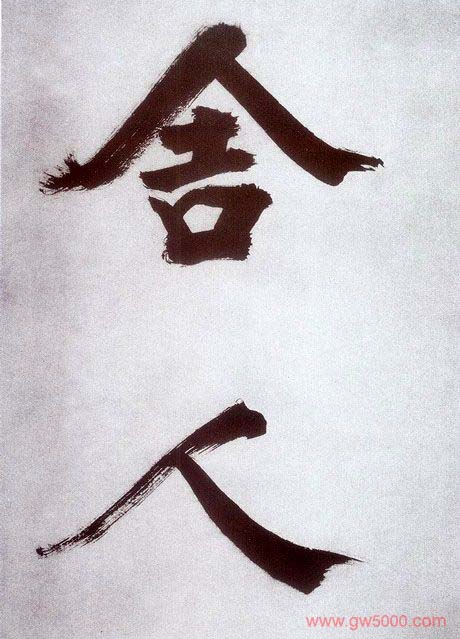 舍
人
www.gw5000.com